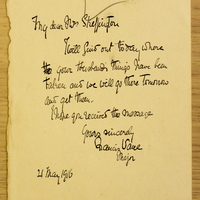 My dear Mrs Skeffington
I will find out today where
the your husbands things have been
taken and we will go there tomorrow
and get them.
I hope you received the message
Yours sincerely
Francis Vane
Major
21 May 1916